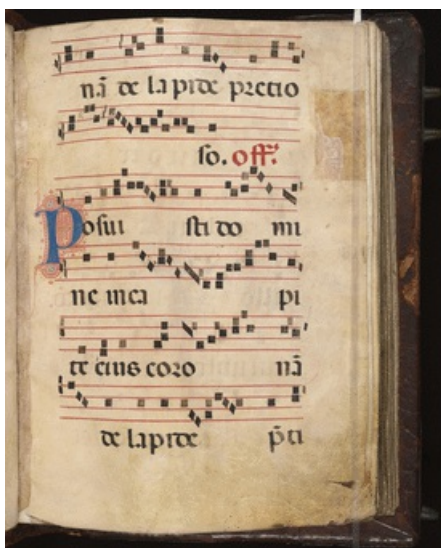 nā de lapide precio
so. off.
Posui sti do mi
ne in ca pi
te eius coro nā
de lapide p̄ti